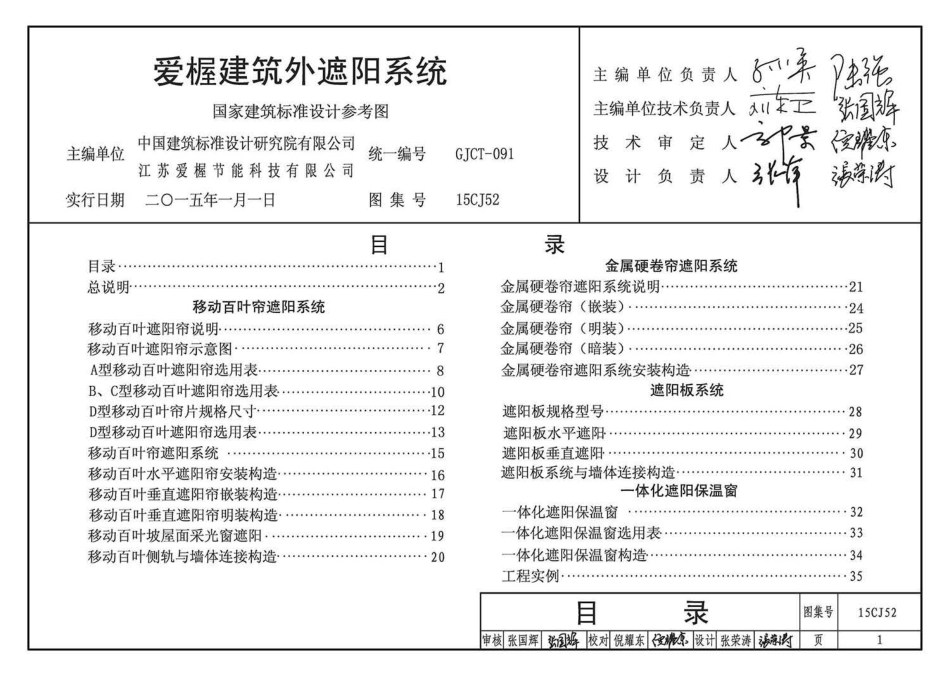 爱楃建筑外遮阳系统
国家建筑标准设计参考图
主编单位 中国建筑标准设计研究院有限公司 江苏爱楃节能科技有限公司 统一编号 GJCT-091
实行日期 二〇一五年一月一日 图集号 15CJ52
主编单位负责人
主编单位技术负责人
技术审定人
设计负责人
目 录
目录 1
总说明 2
移动百叶帘遮阳系统
移动百叶遮阳帘说明 6
移动百叶遮阳帘示意图 7
A型移动百叶遮阳帘选用表 8
B、C型移动百叶遮阳帘选用表 10
D型移动百叶帘片规格尺寸 12
D型移动百叶遮阳帘选用表 13
移动百叶帘遮阳系统 15
移动百叶水平遮阳帘安装构造 16
移动百叶垂直遮阳帘嵌装构造 17
移动百叶垂直遮阳帘明装构造 18
移动百叶坡屋面采光窗遮阳 19
移动百叶侧轨与墙体连接构造 20
金属硬卷帘遮阳系统
金属硬卷帘遮阳系统说明 21
金属硬卷帘（嵌装） 24
金属硬卷帘（明装） 25
金属硬卷帘（暗装） 26
金属硬卷帘遮阳系统安装构造 27
遮阳板系统
遮阳板规格型号 28
遮阳板水平遮阳 29
遮阳板垂直遮阳 30
遮阳板系统与墙体连接构造 31
一体化遮阳保温窗
一体化遮阳保温窗 32
一体化遮阳保温窗选用表 33
一体化遮阳保温窗构造 34
工程实例 35
目 录 图集号 15CJ52
审核 张国辉 校对 倪耀东 设计 张荣涛 页 1